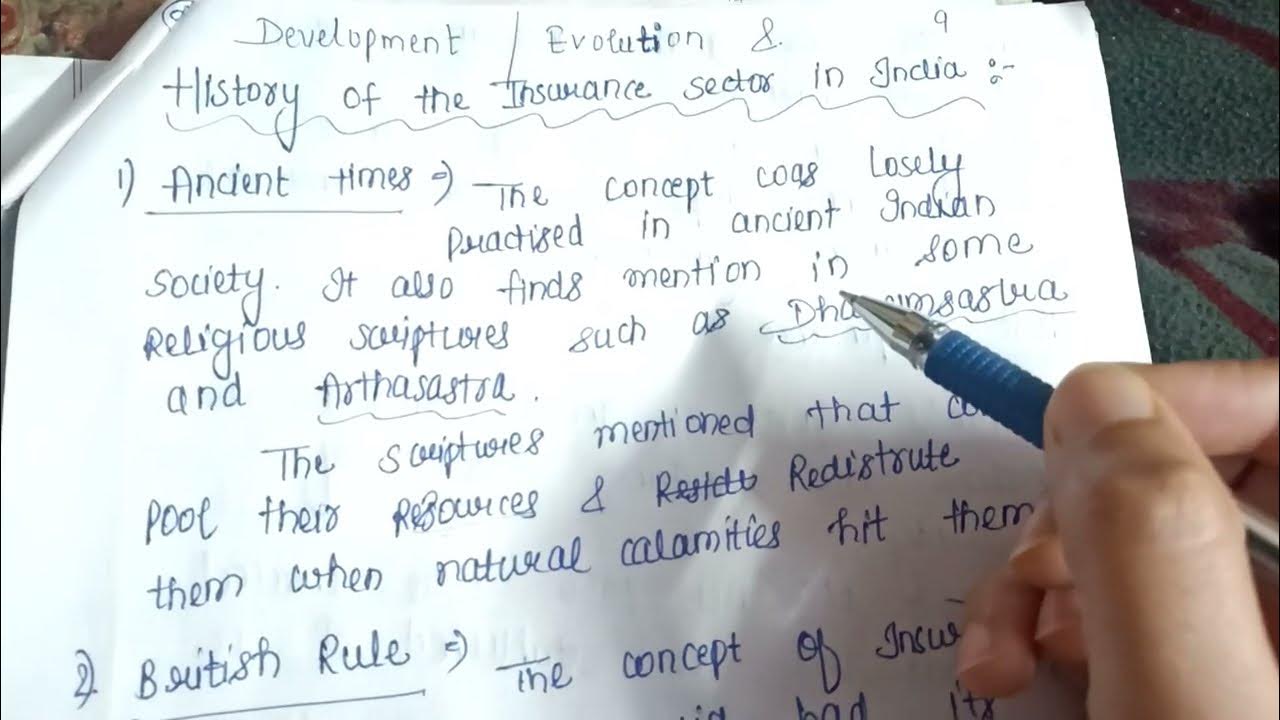 9
Development / Evolution &
History of the Insurance sector in India :-
1) Ancient times => The concept was losely
practised in ancient Indian
society. It also finds mention in some
Religious scriptures such as
and Arthasastra.
The scriptures mentioned that
pool their Resources & Redistrute
them when natural calamities hit them
2) British Rule => The concept of
had its